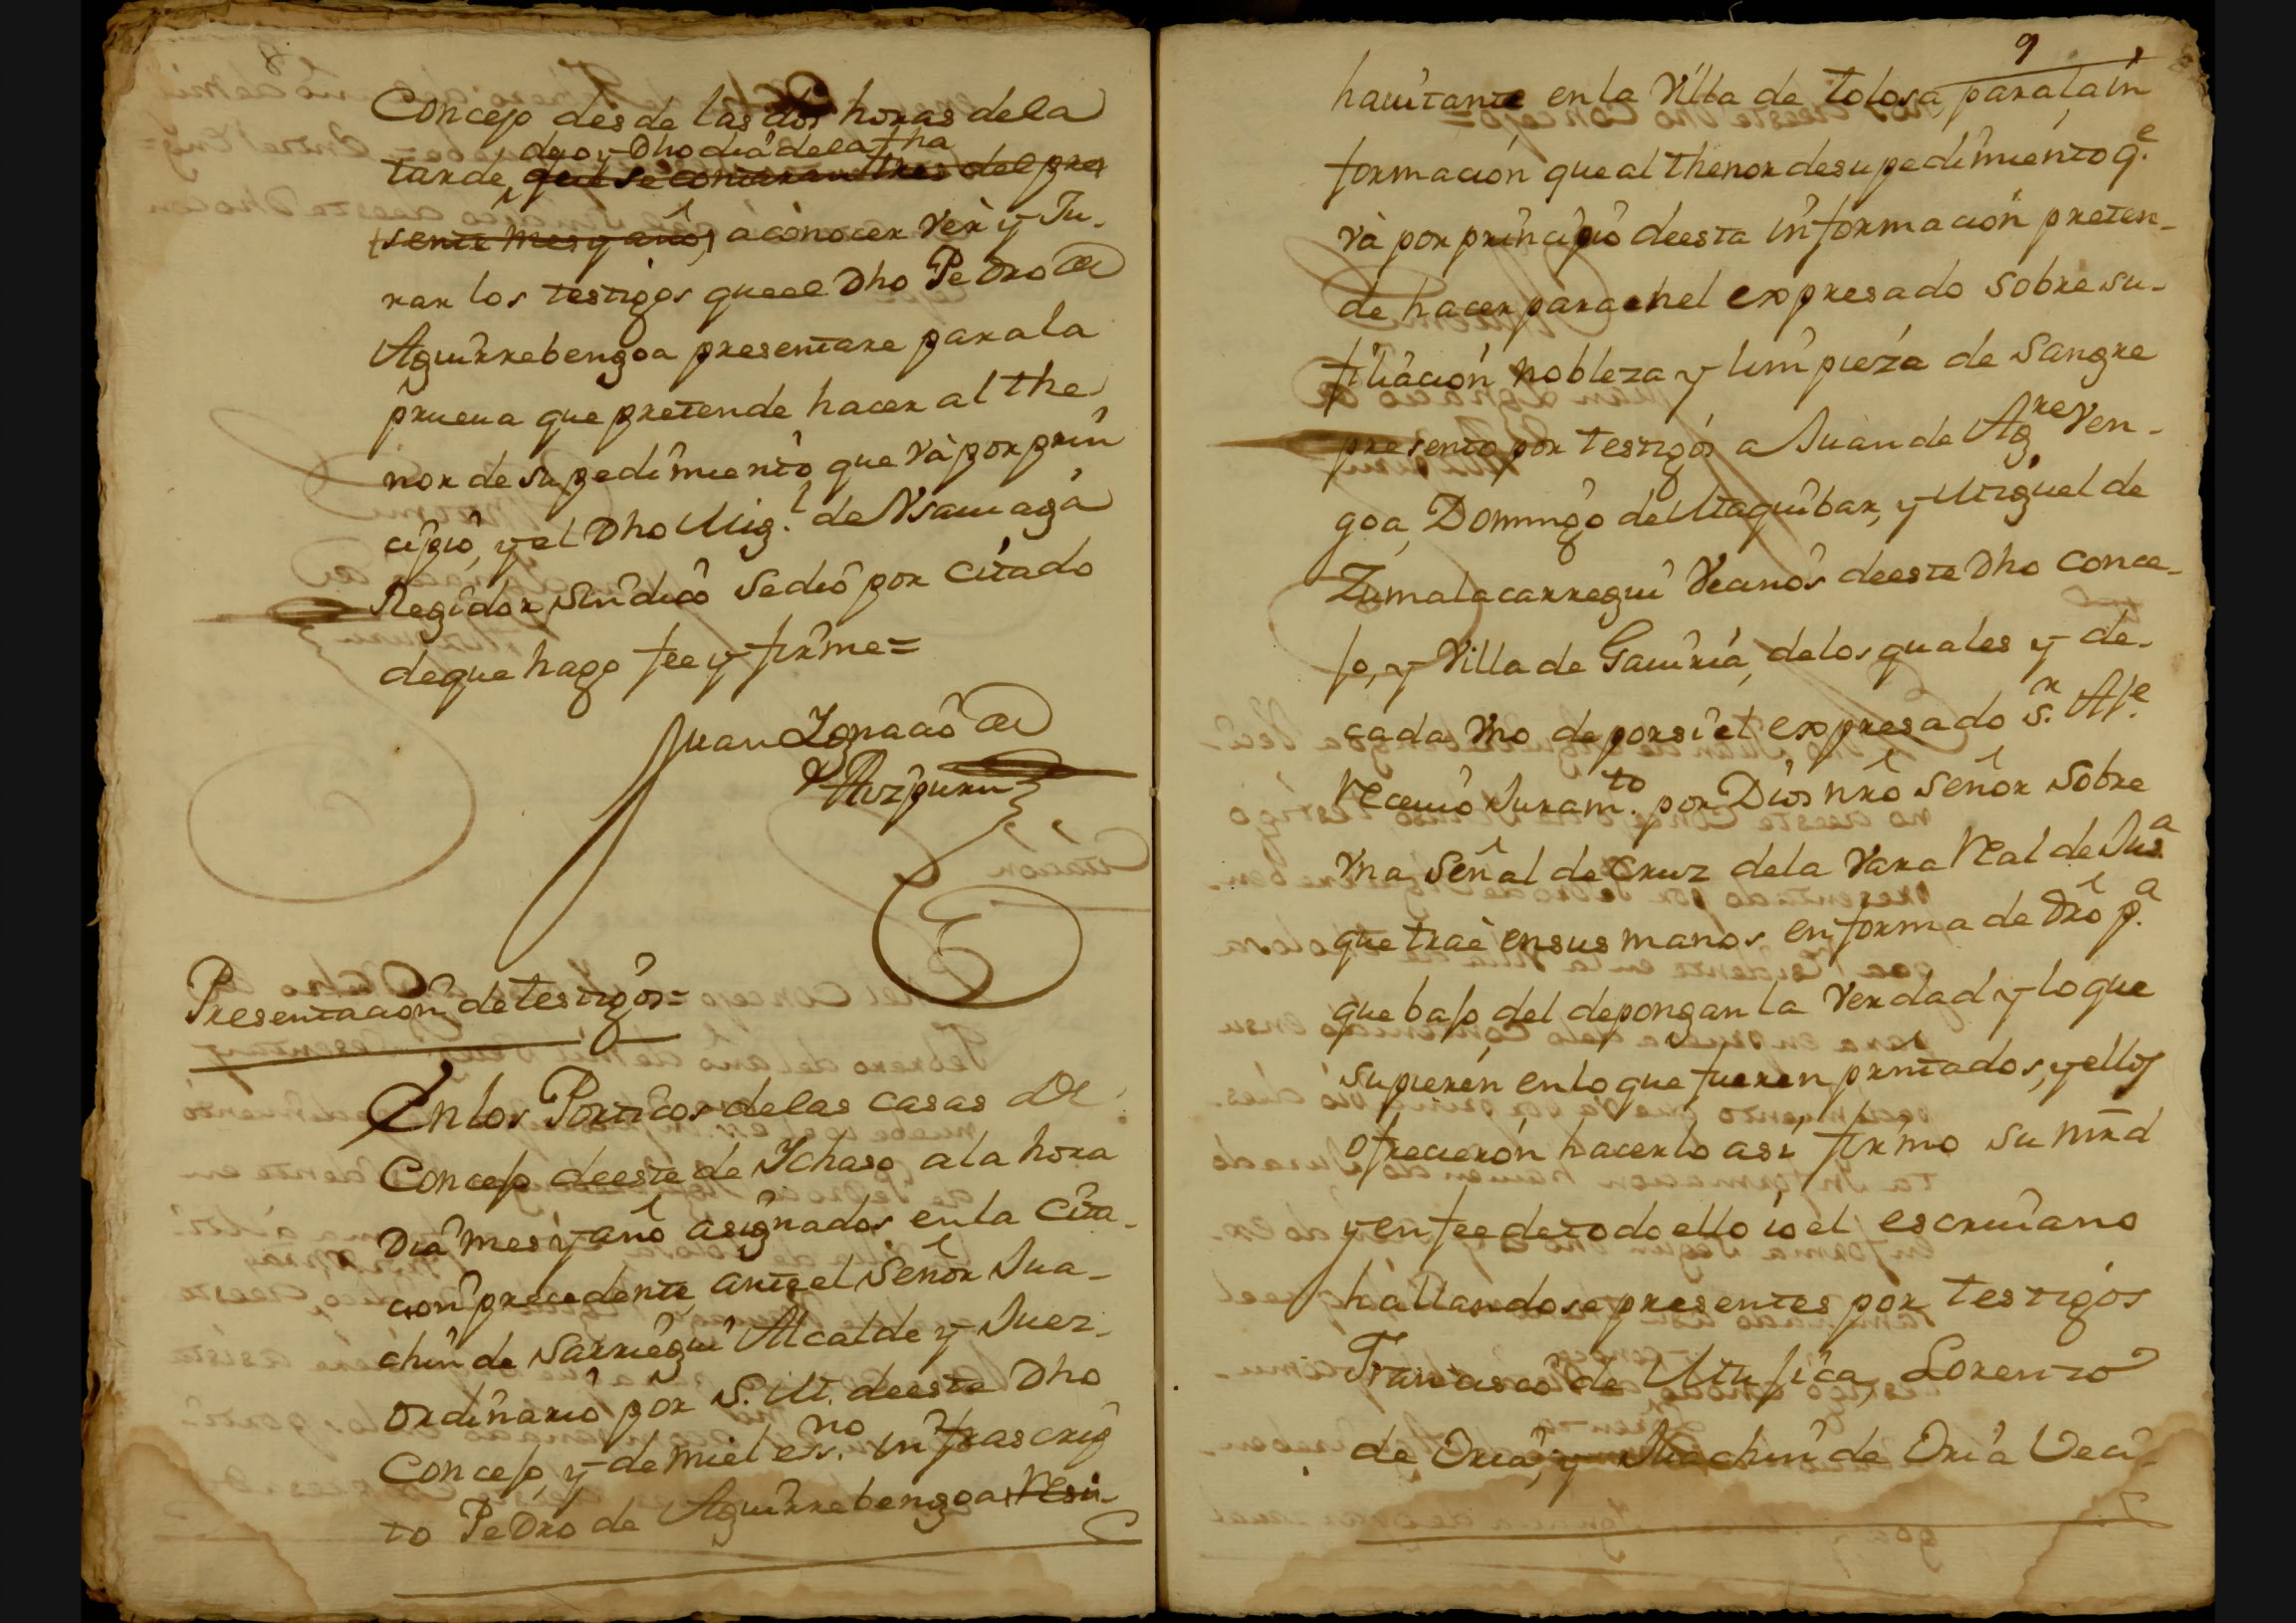 Concejo desde las dos horas dela
deoy Dho dia dela fha
tarde, que se contaran tres del pre
sente mes y año, a conocer Ver y Ju-
rar los testigos que el Dho Pedro de
Aguirrebengoa presentare para la
prueua que pretende hacer al the
nor de su pedimiento que và por prin
cipio, y el Dho Mig.l de Ysauiaga
Regidor Sindico se dio por citado
de que hago fee y firme=
Juan Ygnacio de
Aizpuru
Presentacion de testigos=
En los Porticos delas casas de
Concejo deeste de Ychaso a la hora
Dia mes y año asignados en la cita-
cion precedente, ante el Señor Jua-
chin de Sarriegui Alcalde y Juez
ordinario por S. M. deeste Dho
Concejo, y de mi el ess.no infrascrip
to Pedro de Aguirrebengoa Resi-
9
hauitante en la Villa de Tolosa, para la in
formacion que al thenor de su pedimiento q.e
và por principio deesta informacion preten-
de hacer para enel expresado sobre su-
filiacion nobleza y limpieza de sangre
presento por testigos a Juan de Ag.rreven-
goa, Domingo de Utaquibar, y Miguel de
Zumalacarregui Vecinos deeste Dho conce-
jo, y Villa de Gauiria, delos quales y de-
cada Vno de por si el expresado S.r Al.e
Receuio Juram.to por Dios nrô Señor sobre
Vna señal de Cruz dela Vara Real de Jus.a
que traê en sus manos en forma de Drô p.a
que bajo del depongan la Verdad y lo que
supieren en lo que fueren prêntados, y ellos
ofrecieron hacerlo asi, firmo su mrd
y en fee de todo ello io el escriuano
hallandose presentes por testigos
Francisco de Mujica, Lorenzo
de Oria, y Juachin de Oria Veci-